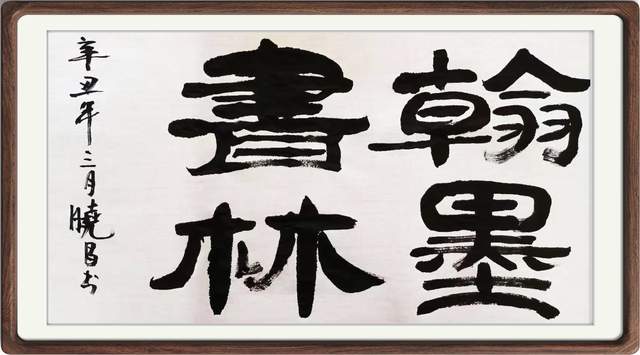 翰墨
書林
辛丑年三月曉昌书